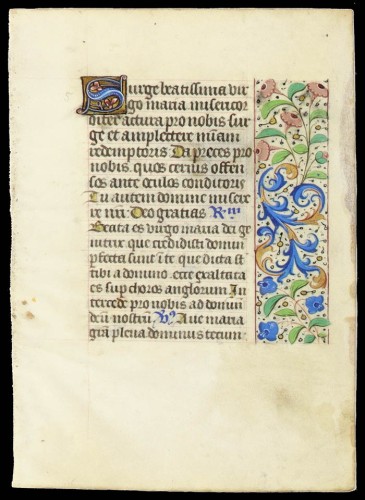 Surge beatissima vir
go maria misericor
diter actura pro nobis sur
ge et amplectere mīam
redemptoris Da preces pro
nobis quos cernis offen
sos ante oculos conditoris
Tu autem domine misere
re nr̄i Deo gratias R̄m
Beata es virgo maria dei ge
nitrix que credidisti domino
perfecta sunt in te que dicta st̄
tibi a domino ecce exaltata
es sup choros anglorum In
tercede pro nobis ad domi
deū nostrū V̄s Ave maria
grā plena dominus tecum